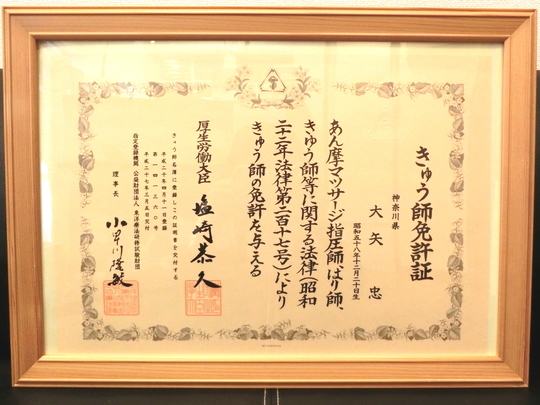 きゅう師免許証
神奈川県
大矢 忠
昭和五十八年十二月二十日生
あん摩マツサージ指圧師、はり師、
きゆう師等に関する法律(昭和
二十二年法律第二百十七号)により
きゅう師の免許を与える
厚生労働大臣 塩崎恭久
きゅう師名簿に登録しこの証明書を交付する
平成二十年四月十一日登録
第一四一三六〇号
平成二十七年三月五日交付
指定登録機関 公益財団法人 東洋療法研修試験財団
理事長 小早川隆敏